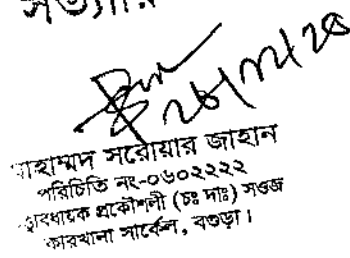 ২৮/১২/২৩
মোহাম্মদ সরোয়ার জাহান
পরিচিতি নং-০৬০২২২২
তত্ত্বাবধায়ক প্রকৌশলী (চঃ দাঃ) সওজ
কারখানা সার্কেল, বগুড়া।